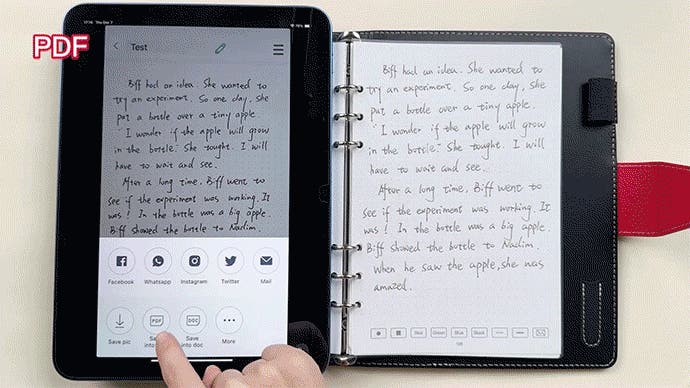 PDF
17:16 Thu Dec 7
Test
Biff had an idea. She wanted to
try an experiment. So one day, she
put a bottle over a tiny apple.
"I wonder if the apple will grow
in the bottle." She tought. I will
have to wait and see.
After a long time, Biff went to
see if the experiment was working. It
was! In the bottle was a big apple.
Biff showed the bottle to Nadim.
Facebook
Whatsapp
Instagram
Twitter
Mail
Save pic
Save into
Save into doc
More
Biff had an idea. She wanted to
try an experiment. So one day, she
put a bottle over a tiny apple.
"I wonder if the apple will grow
in the bottle." She tought. I will
have to wait and see.
After a long time, Biff went to
see if the experiment was working. It
was! In the bottle was a big apple.
Biff showed the bottle to Nadim.
When he saw the apple, she was
amazed.
Red
Green
Blue
Black